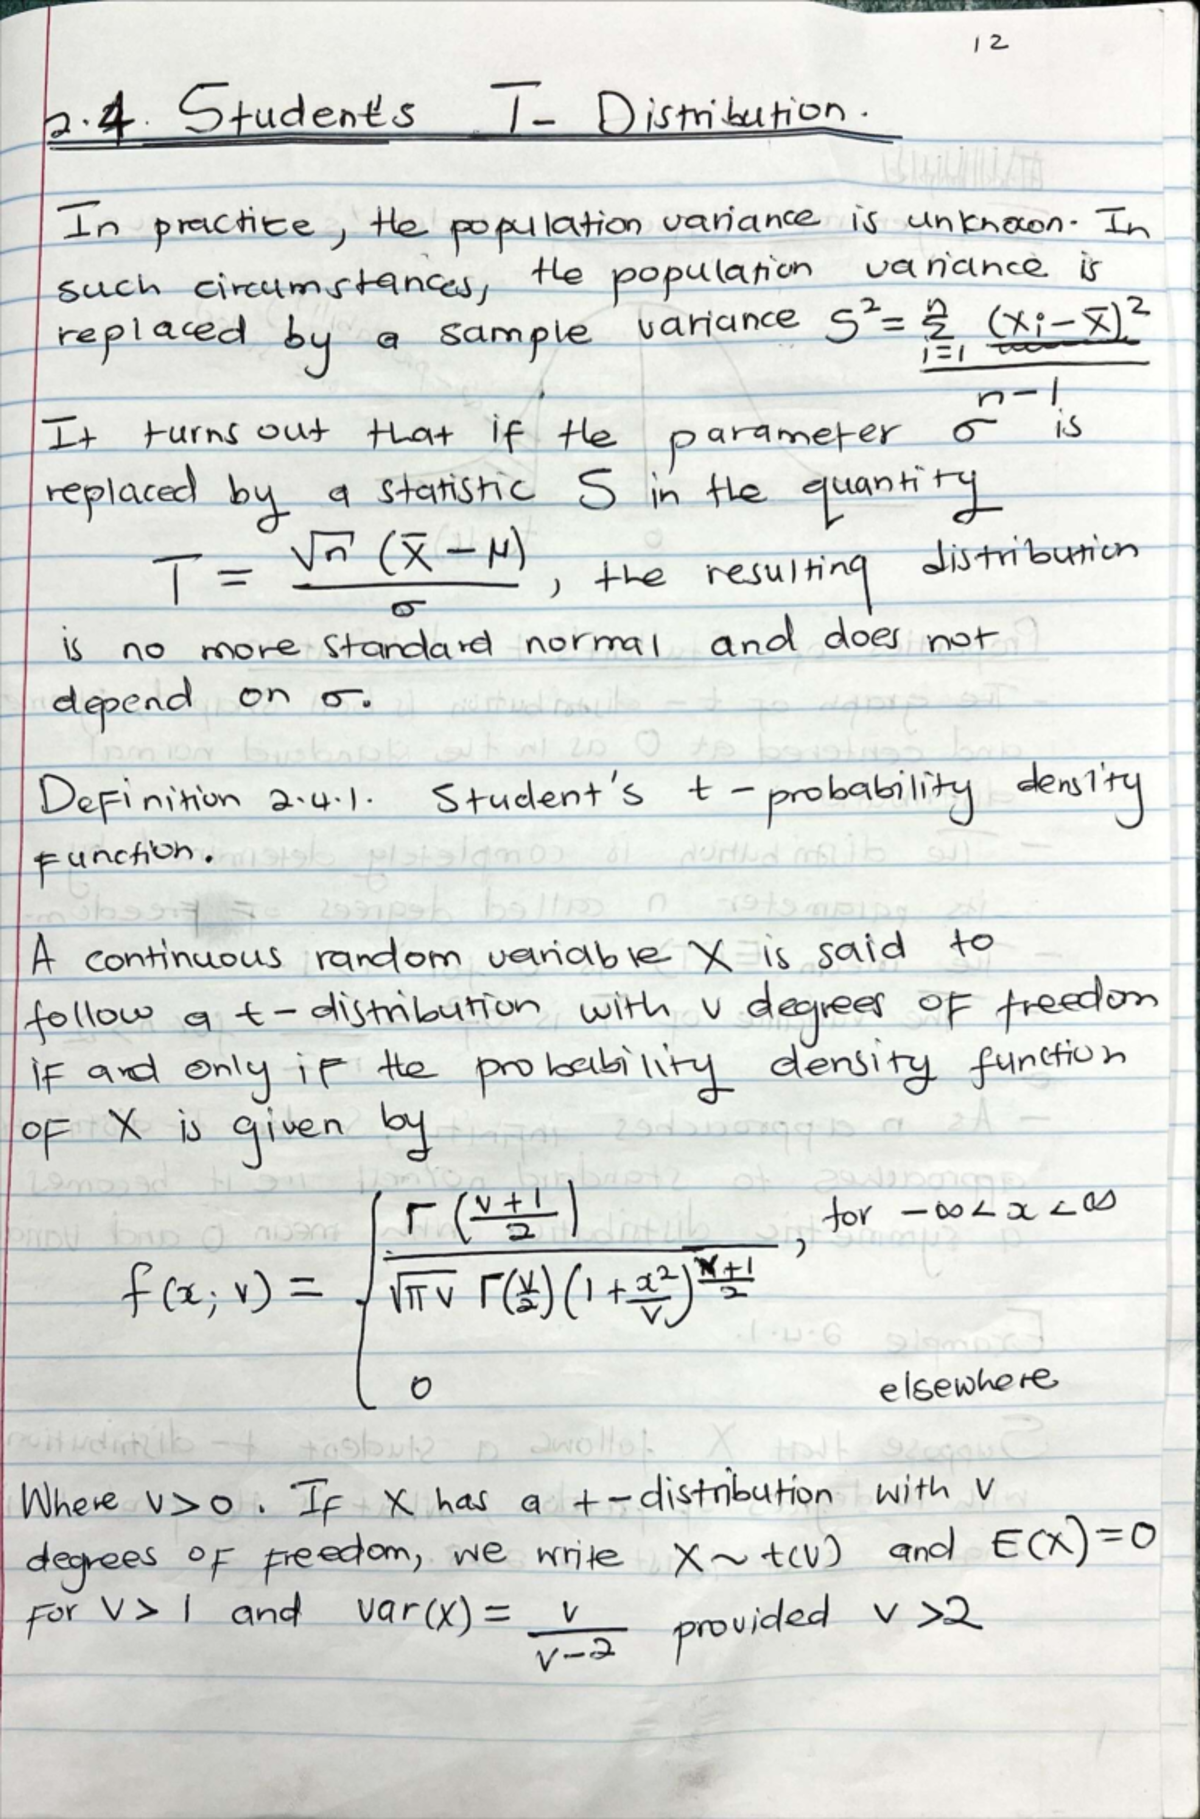 12
2.4. Student's T- Distribution.
In practice, the population variance is unknown. In
such circumstances, the population variance is
replaced by a sample variance S² = Σ_{i=1}^{n} (xi - x̄)² / n-1
It turns out that if the parameter σ is
replaced by a statistic S in the quantity
T = √n (x̄ - μ) / σ , the resulting distribution
is no more standard normal and does not
depend on σ.
Definition 2.4.1. Student's t - probability density
function.
A continuous random variable X is said to
follow a t - distribution with v degrees of freedom
if and only if the probability density function
of X is given by
f(x; v) = { Γ((v+1)/2) / (√πv Γ(v/2) (1 + x²/v)^((v+1)/2)) , for -∞ < x < ∞
0 elsewhere
Where v > 0. If X has a t - distribution with v
degrees of freedom, we write X ~ t(v) and E(X) = 0
for v > 1 and var(x) = v / v-2 provided v > 2